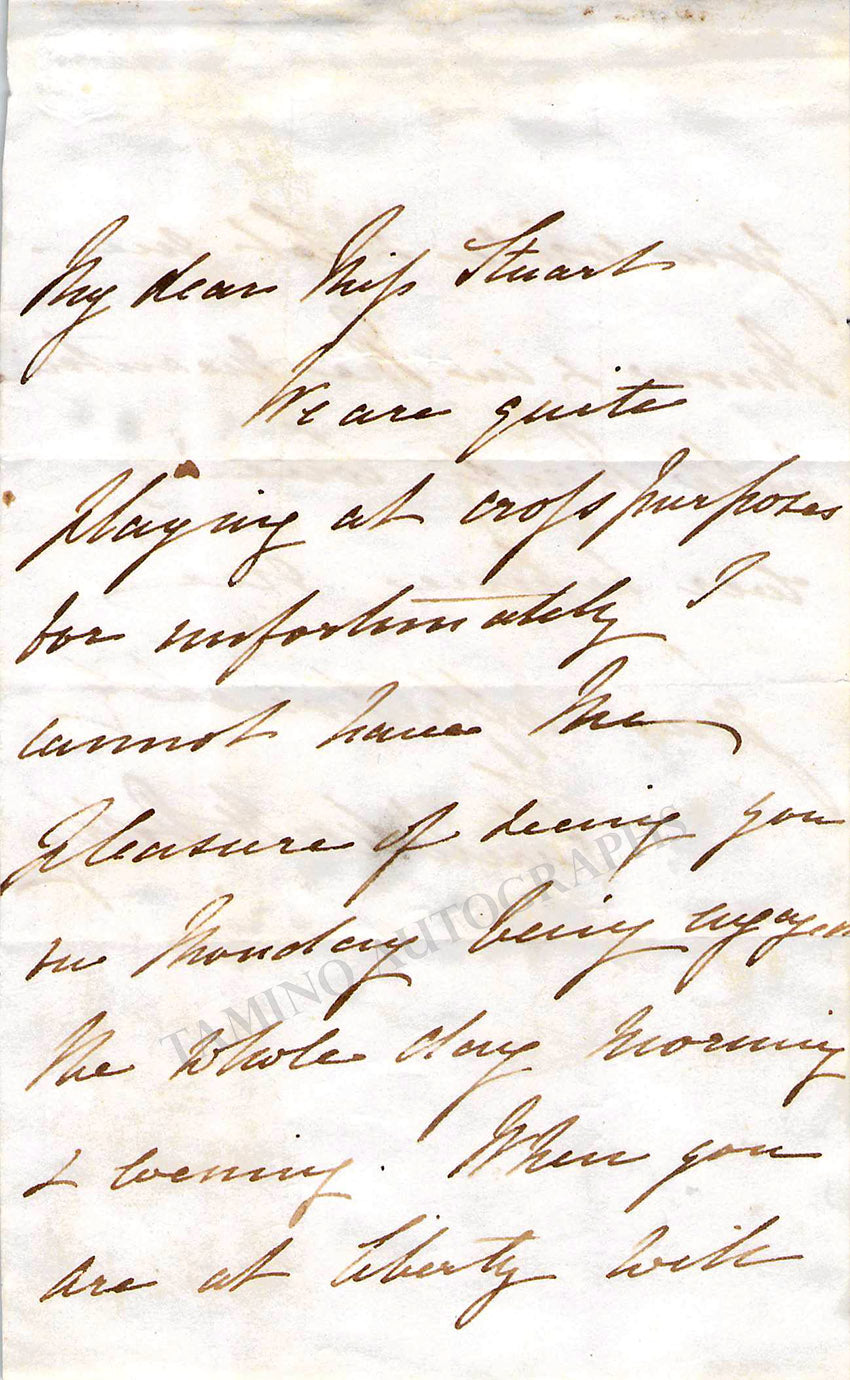 My dear Miss Stuart
We are quite
playing at cross purposes
for unfortunately I
cannot have the
pleasure of seeing you
on Monday being engaged
the whole day morning
& evening. When you
are at liberty will
TAMINO AUTOGRAPHS